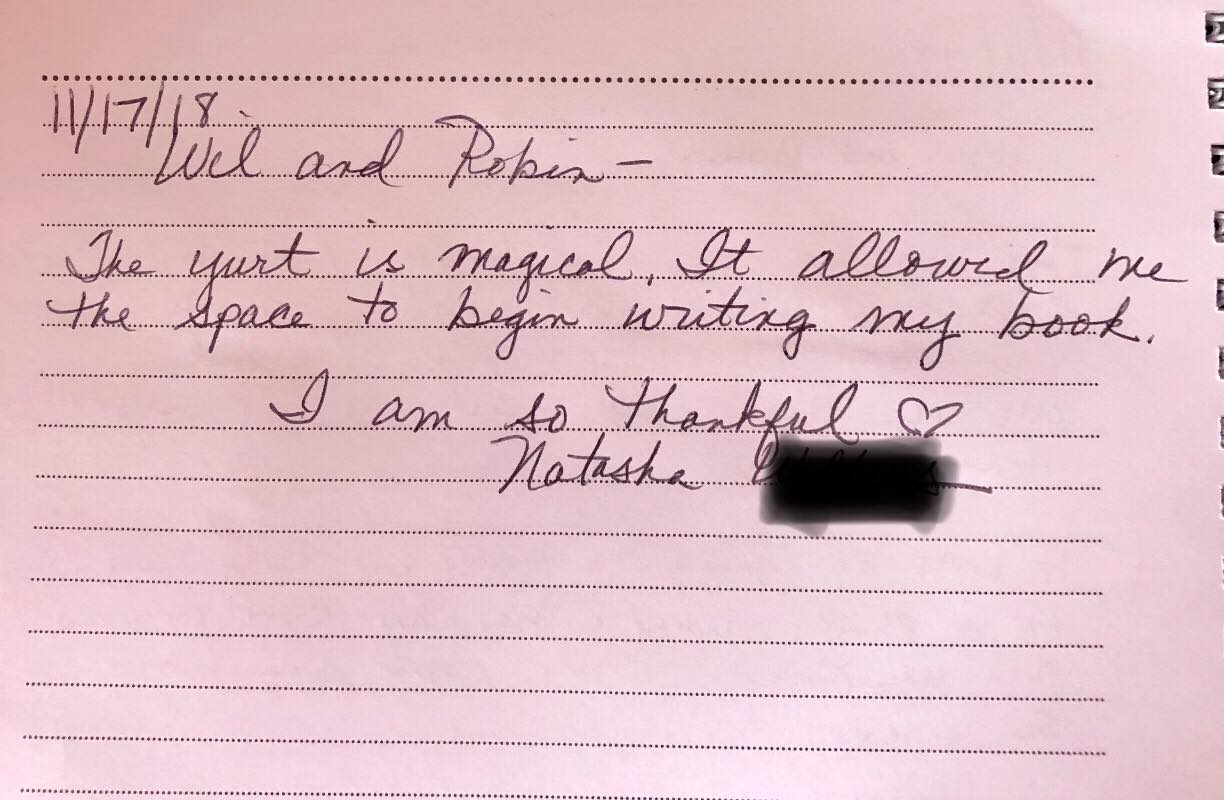 11/17/18
Wil and Robin —
The yurt is magical. It allowed me
the space to begin writing my book.
I am so thankful ♡
Natasha